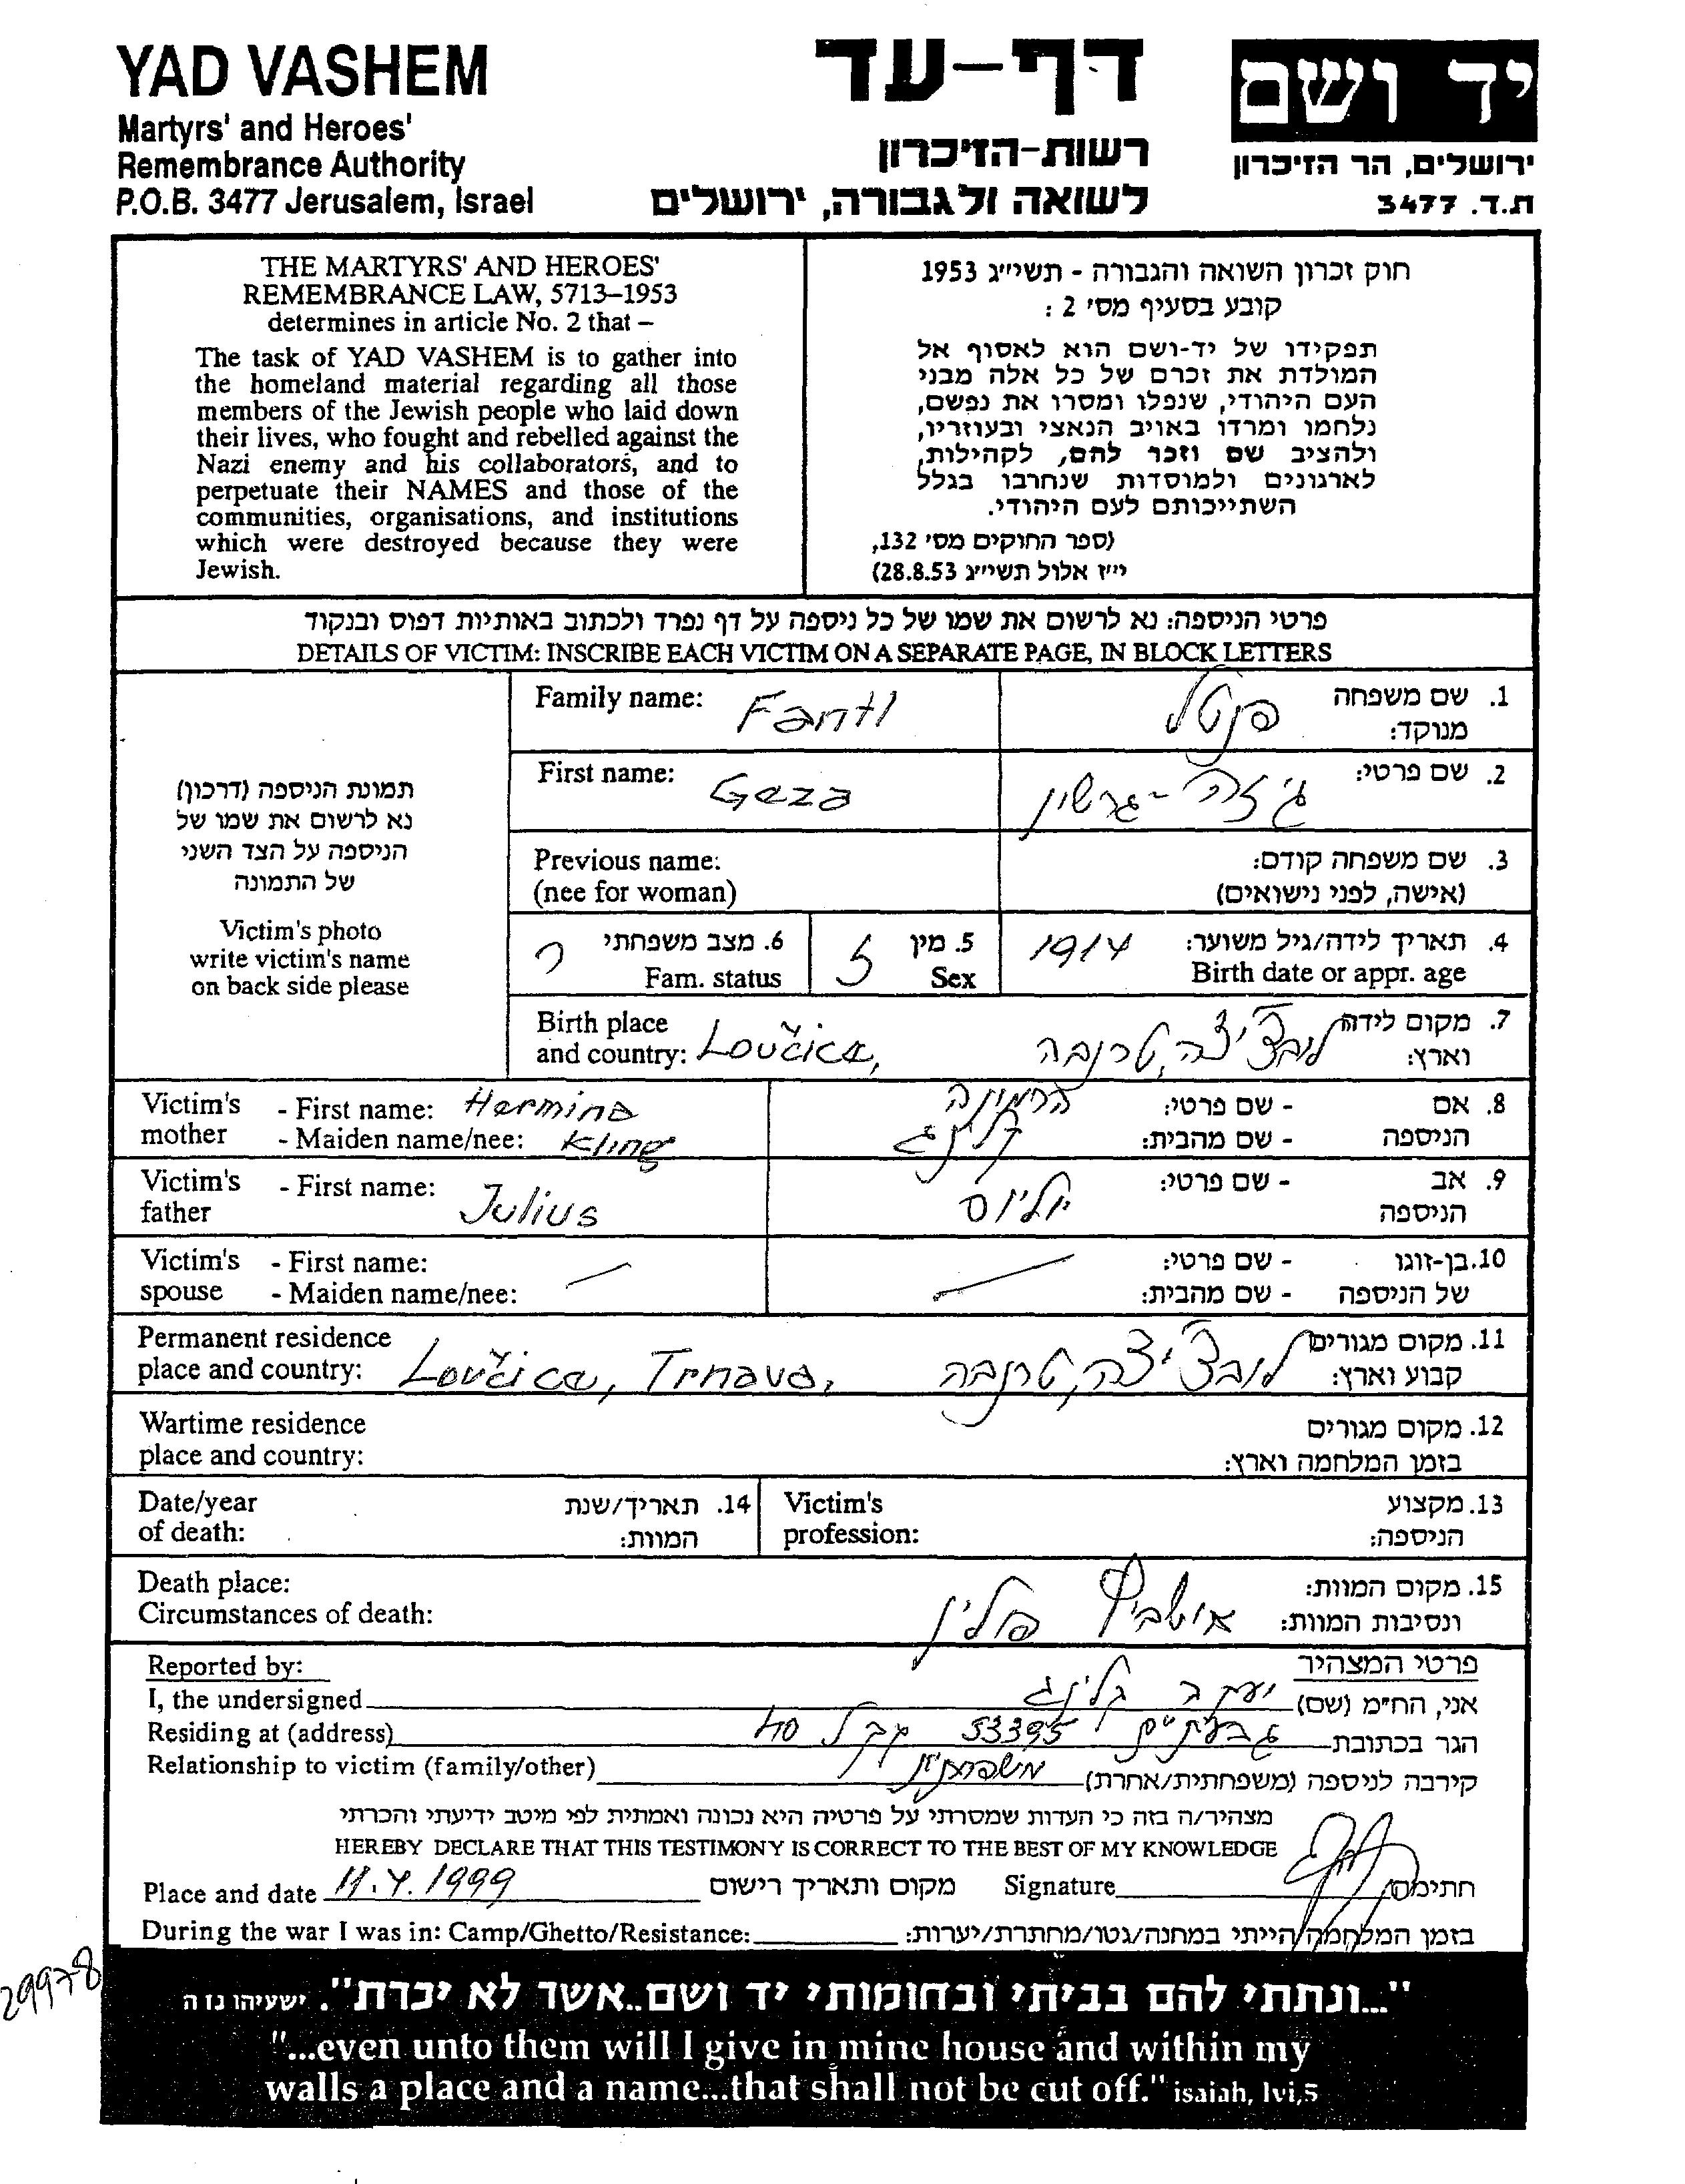 YAD VASHEM
Martyrs' and Heroes'
Remembrance Authority
P.O.B. 3477 Jerusalem, Israel
דף-עד
רשות-הזיכרון
לשואה ולגבורה, ירושלים
יד ושם
ירושלים, הר הזיכרון
ת.ד. 3477
THE MARTYRS' AND HEROES'
REMEMBRANCE LAW, 5713–1953
determines in article No. 2 that –
The task of YAD VASHEM is to gather into
the homeland material regarding all those
members of the Jewish people who laid down
their lives, who fought and rebelled against the
Nazi enemy and his collaborators, and to
perpetuate their NAMES and those of the
communities, organisations, and institutions
which were destroyed because they were
Jewish.
חוק זכרון השואה והגבורה - תשי"ג 1953
קובע בסעיף מס' 2 :
תפקידו של יד-ושם הוא לאסוף אל
המולדת את זכרם של כל אלה מבני
העם היהודי, שנפלו ומסרו את נפשם,
נלחמו ומרדו באויב הנאצי ובעוזריו,
ולהציב שם וזכר להם, לקהילות,
לארגונים ולמוסדות שנחרבו בגלל
השתייכותם לעם היהודי.
(ספר החוקים מס' 132,
י"ז אלול תשי"ג 28.8.53)
פרטי הניספה: נא לרשום את שמו של כל ניספה על דף נפרד ולכתוב באותיות דפוס ובנקוד
DETAILS OF VICTIM: INSCRIBE EACH VICTIM ON A SEPARATE PAGE, IN BLOCK LETTERS
תמונת הניספה (דרכון)
נא לרשום את שמו של
הניספה על הצד השני
של התמונה
Victim's photo
write victim's name
on back side please
Family name: Fantl פנטל 1. שם משפחה
מנוקד:
First name: Geza גיזה-גרשון 2. שם פרטי:
Previous name: 3. שם משפחה קודם:
(nee for woman) (אישה, לפני נישואים)
6. מצב משפחתי ר 5. מין ז 1914 4. תאריך לידה/גיל משוער:
Fam. status Sex Birth date or appr. age
Birth place 7. מקום לידה
and country: Lovčice, לובצ'יצה, טרנבה וארץ:
Victim's - First name: Hermina הרמינה - שם פרטי: 8. אם
mother - Maiden name/nee: Kling קלינג - שם מהבית: הניספה
Victim's - First name: Julius יוליוס - שם פרטי: 9. אב
father הניספה
Victim's - First name: - שם פרטי: 10. בן-זוגו
spouse - Maiden name/nee: - שם מהבית: של הניספה
Permanent residence 11. מקום מגורים
place and country: Lovčice, Trnava, לובצ'יצה, טרנבה קבוע וארץ:
Wartime residence 12. מקום מגורים
place and country: בזמן המלחמה וארץ:
Date/year 14. תאריך/שנת Victim's 13. מקצוע
of death: המוות: profession: הניספה:
Death place: 15. מקום המוות:
Circumstances of death: אושביץ פולין ונסיבות המוות:
Reported by: פרטי המצהיר
I, the undersigned יעקב קלינג אני, הח"מ (שם)
Residing at (address) גבעתיים 53395 40 הגר בכתובת
Relationship to victim (family/other) משפחתית קירבה לניספה (משפחתית/אחרת)
מצהיר/ה בזה כי העדות שמסרתי על פרטיה היא נכונה ואמתית לפי מיטב ידיעתי והכרתי
HEREBY DECLARE THAT THIS TESTIMONY IS CORRECT TO THE BEST OF MY KNOWLEDGE
Place and date 11.4.1999 מקום ותאריך רישום Signature חתימה
During the war I was in: Camp/Ghetto/Resistance: בזמן המלחמה הייתי במחנה/גטו/מחתרת/יערות:
29978
"...ונתתי להם בביתי ובחומותי יד ושם..אשר לא יכרת". ישעיהו נז ה
"...even unto them will I give in mine house and within my
walls a place and a name...that shall not be cut off." isaiah, lvi,5